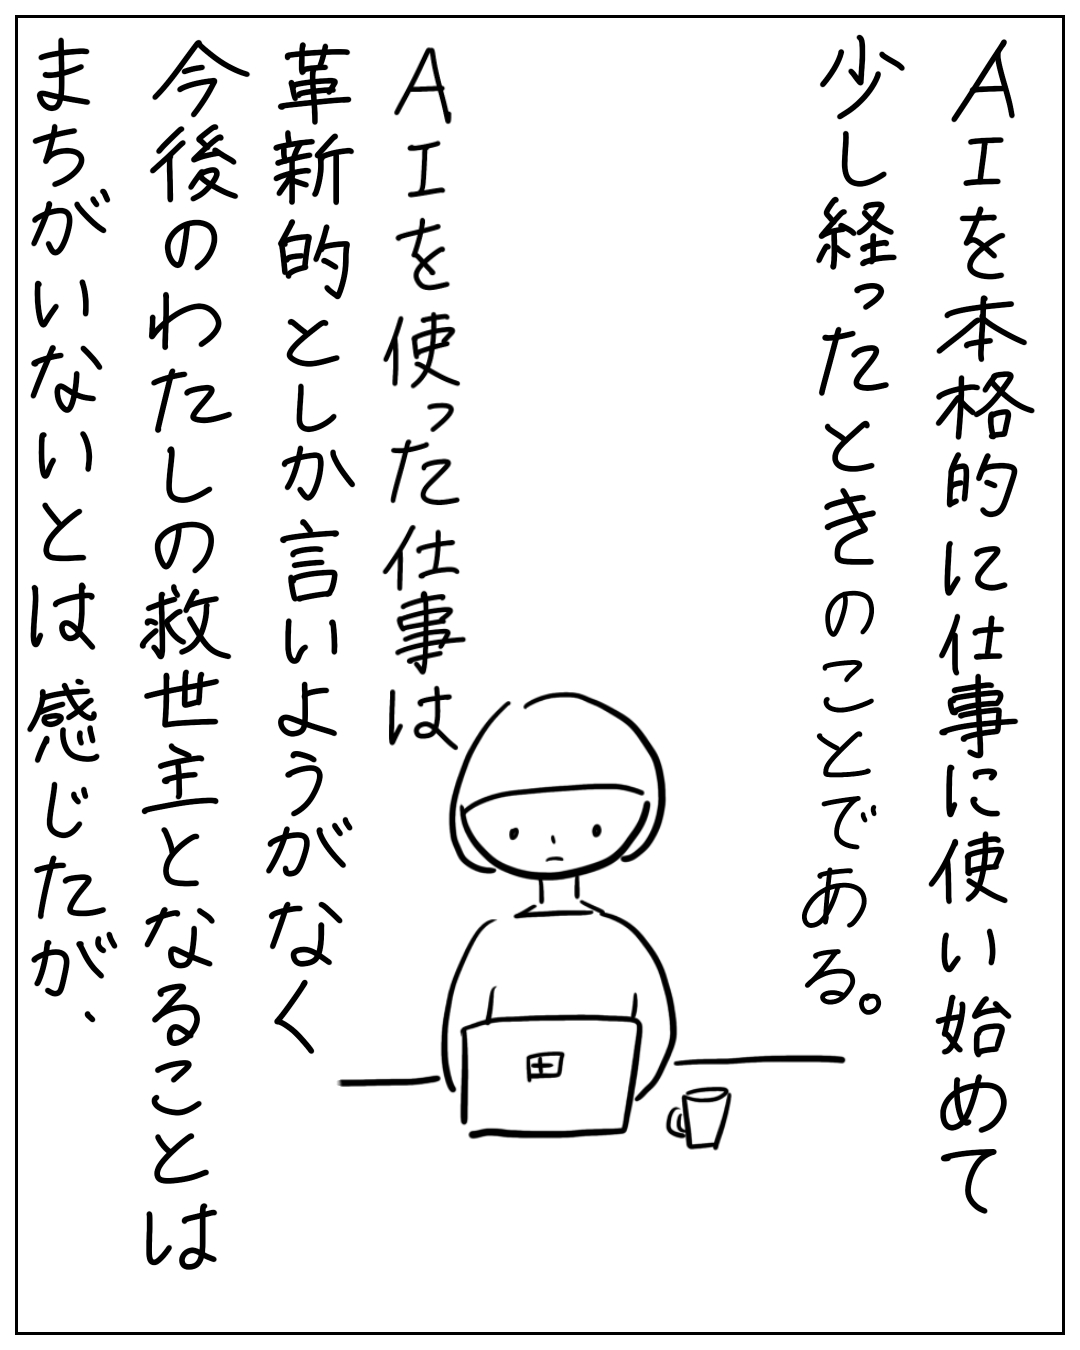 AIを本格的に仕事に使い始めて
少し経ったときのことである。
AIを使った仕事は
革新的としか言いようがなく
今後のわたしの救世主となることは
まちがいないとは感じたが、